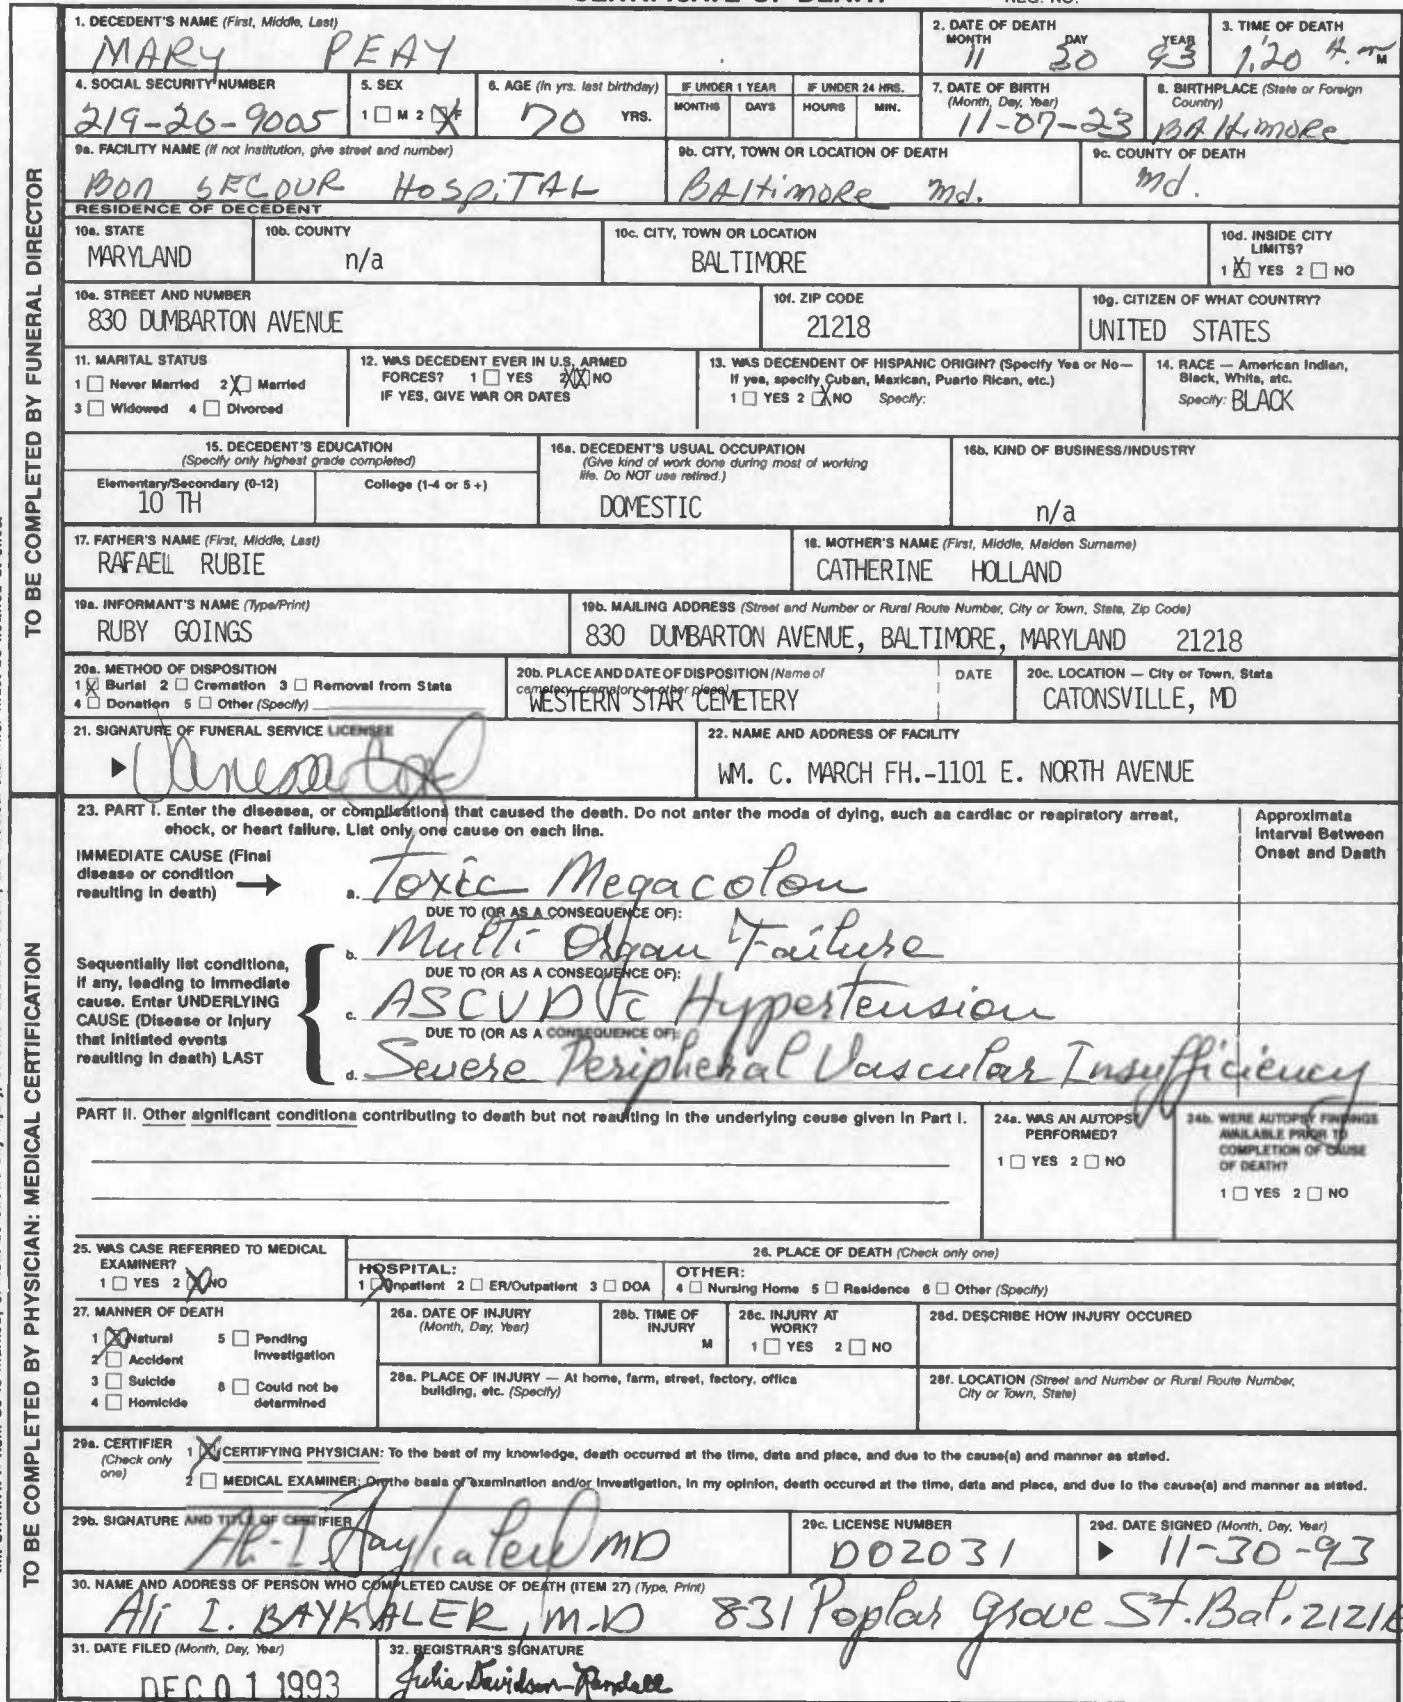 1. DECEDENT'S NAME (First, Middle, Last)
MARY PEAY
2. DATE OF DEATH
MONTH DAY YEAR
11 30 93
3. TIME OF DEATH
1:20 A.m M
4. SOCIAL SECURITY NUMBER
219-20-9005
5. SEX
1 M 2 F
6. AGE (In yrs. last birthday)
70 YRS.
IF UNDER 1 YEAR
MONTHS DAYS
IF UNDER 24 HRS.
HOURS MIN.
7. DATE OF BIRTH
(Month, Day, Year)
11-07-23
8. BIRTHPLACE (State or Foreign
Country)
BAltimoRe
9a. FACILITY NAME (If not institution, give street and number)
BON SECOUR HospiTAL
9b. CITY, TOWN OR LOCATION OF DEATH
BAltimoRe md.
9c. COUNTY OF DEATH
md.
RESIDENCE OF DECEDENT
10a. STATE
MARYLAND
10b. COUNTY
n/a
10c. CITY, TOWN OR LOCATION
BALTIMORE
10d. INSIDE CITY
LIMITS?
1 X YES 2 NO
10e. STREET AND NUMBER
830 DUMBARTON AVENUE
10f. ZIP CODE
21218
10g. CITIZEN OF WHAT COUNTRY?
UNITED STATES
11. MARITAL STATUS
1 Never Married 2 X Married
3 Widowed 4 Divorced
12. WAS DECEDENT EVER IN U.S. ARMED
FORCES? 1 YES 2 XX NO
IF YES, GIVE WAR OR DATES
13. WAS DECENDENT OF HISPANIC ORIGIN? (Specify Yes or No—
If yes, specify Cuban, Mexican, Puerto Rican, etc.)
1 YES 2 X NO Specify:
14. RACE — American Indian,
Black, White, etc.
Specify: BLACK
15. DECEDENT'S EDUCATION
(Specify only highest grade completed)
Elementary/Secondary (0-12) College (1-4 or 5+)
10 TH
16a. DECEDENT'S USUAL OCCUPATION
(Give kind of work done during most of working
life. Do NOT use retired.)
DOMESTIC
16b. KIND OF BUSINESS/INDUSTRY
n/a
17. FATHER'S NAME (First, Middle, Last)
RAFAELL RUBIE
18. MOTHER'S NAME (First, Middle, Maiden Surname)
CATHERINE HOLLAND
19a. INFORMANT'S NAME (Type/Print)
RUBY GOINGS
19b. MAILING ADDRESS (Street and Number or Rural Route Number, City or Town, State, Zip Code)
830 DUMBARTON AVENUE, BALTIMORE, MARYLAND 21218
20a. METHOD OF DISPOSITION
1 X Burial 2 Cremation 3 Removal from State
4 Donation 5 Other (Specify)
20b. PLACE AND DATE OF DISPOSITION (Name of
cemetery, crematory or other place)
WESTERN STAR CEMETERY
DATE
20c. LOCATION — City or Town, State
CATONSVILLE, MD
21. SIGNATURE OF FUNERAL SERVICE LICENSEE
22. NAME AND ADDRESS OF FACILITY
WM. C. MARCH FH.-1101 E. NORTH AVENUE
TO BE COMPLETED BY FUNERAL DIRECTOR
23. PART I. Enter the diseases, or complications that caused the death. Do not enter the mode of dying, such as cardiac or respiratory arrest,
shock, or heart failure. List only one cause on each line.
Approximate
Interval Between
Onset and Death
IMMEDIATE CAUSE (Final
disease or condition
resulting in death)
a. Toxic Megacolon
DUE TO (OR AS A CONSEQUENCE OF):
b. Multi Organ Failure
DUE TO (OR AS A CONSEQUENCE OF):
c. ASCVD c Hypertension
DUE TO (OR AS A CONSEQUENCE OF):
d. Severe Peripheral Vascular Insufficiency
Sequentially list conditions,
if any, leading to immediate
cause. Enter UNDERLYING
CAUSE (Disease or injury
that initiated events
resulting in death) LAST
PART II. Other significant conditions contributing to death but not resulting in the underlying cause given in Part I.
24a. WAS AN AUTOPSY
PERFORMED?
1 YES 2 NO
24b. WERE AUTOPSY FINDINGS
AVAILABLE PRIOR TO
COMPLETION OF CAUSE
OF DEATH?
1 YES 2 NO
25. WAS CASE REFERRED TO MEDICAL
EXAMINER?
1 YES 2 X NO
26. PLACE OF DEATH (Check only one)
HOSPITAL:
1 Inpatient 2 ER/Outpatient 3 DOA
OTHER:
4 Nursing Home 5 Residence 6 Other (Specify)
27. MANNER OF DEATH
1 X Natural 5 Pending
Investigation
2 Accident
3 Suicide 6 Could not be
determined
4 Homicide
28a. DATE OF INJURY
(Month, Day, Year)
28b. TIME OF
INJURY
M
28c. INJURY AT
WORK?
1 YES 2 NO
28d. DESCRIBE HOW INJURY OCCURED
28e. PLACE OF INJURY — At home, farm, street, factory, office
building, etc. (Specify)
28f. LOCATION (Street and Number or Rural Route Number,
City or Town, State)
29a. CERTIFIER
(Check only
one)
1 X CERTIFYING PHYSICIAN: To the best of my knowledge, death occurred at the time, date and place, and due to the cause(s) and manner as stated.
2 MEDICAL EXAMINER: On the basis of examination and/or investigation, in my opinion, death occured at the time, date and place, and due to the cause(s) and manner as stated.
29b. SIGNATURE AND TITLE OF CERTIFIER
Ali I Baykaler MD
29c. LICENSE NUMBER
D02031
29d. DATE SIGNED (Month, Day, Year)
11-30-93
30. NAME AND ADDRESS OF PERSON WHO COMPLETED CAUSE OF DEATH (ITEM 27) (Type, Print)
Ali I. BAYKALER, M.D 831 Poplar Grove St. Bal. 21216
31. DATE FILED (Month, Day, Year)
DEC 01 1993
32. REGISTRAR'S SIGNATURE
Julia Davidson-Randall
TO BE COMPLETED BY PHYSICIAN: MEDICAL CERTIFICATION